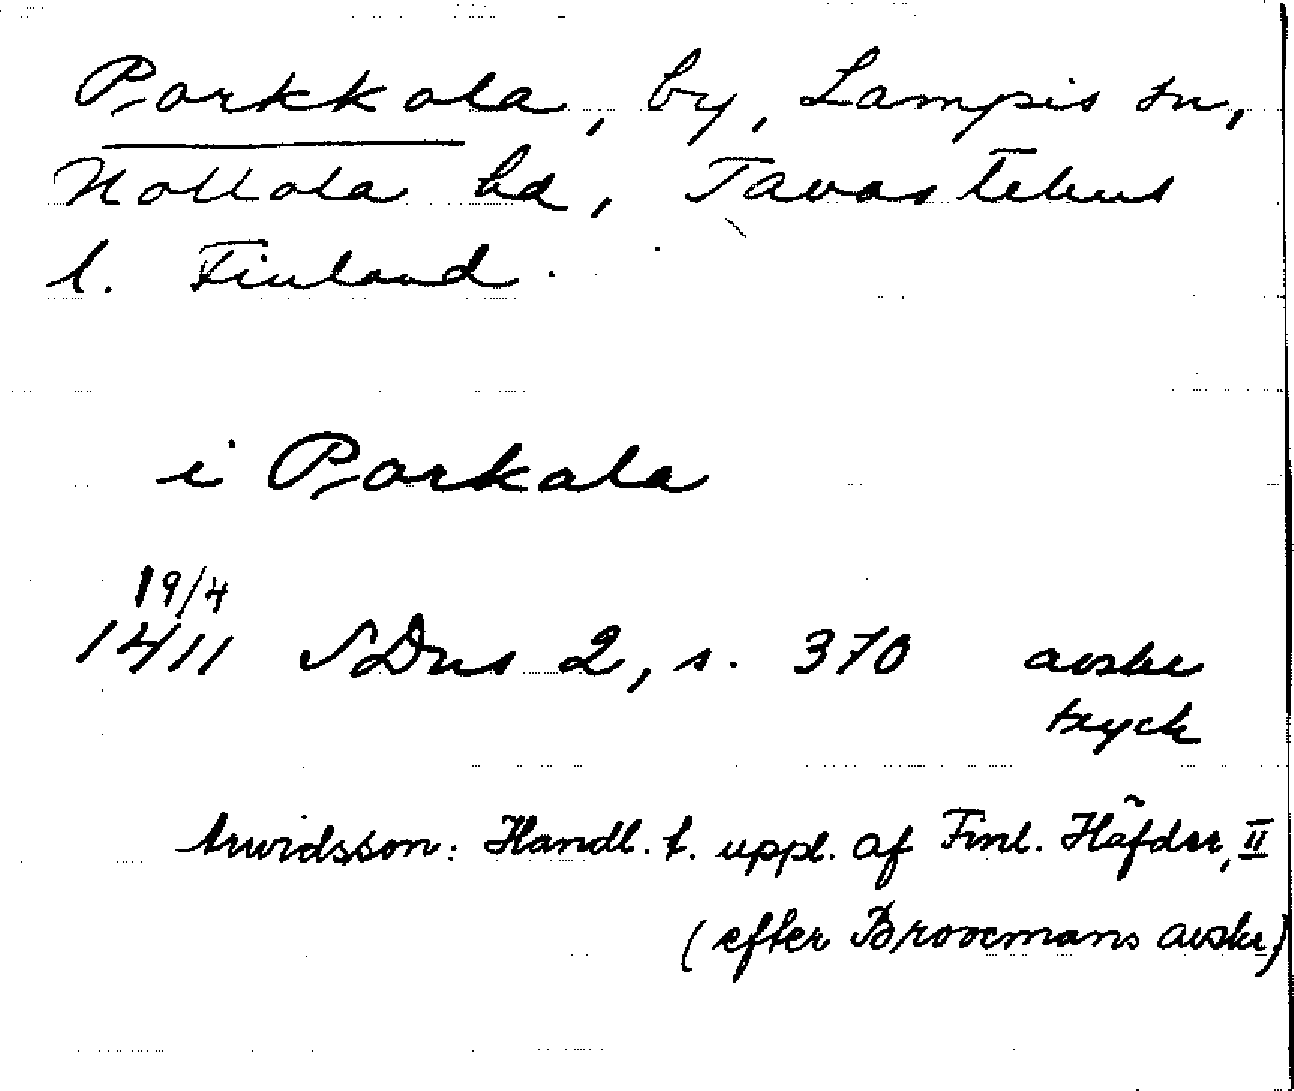 Porkkola, by, Lampis sn,
Hollola hd, Tavastehus
l. Finland.
i Porkala
19/4
1411 SDns 2, s. 370 avskr
tryck
Arwidsson: Handl. t. uppl. af Finl. Häfder, II
(efter Broocmans avskr)